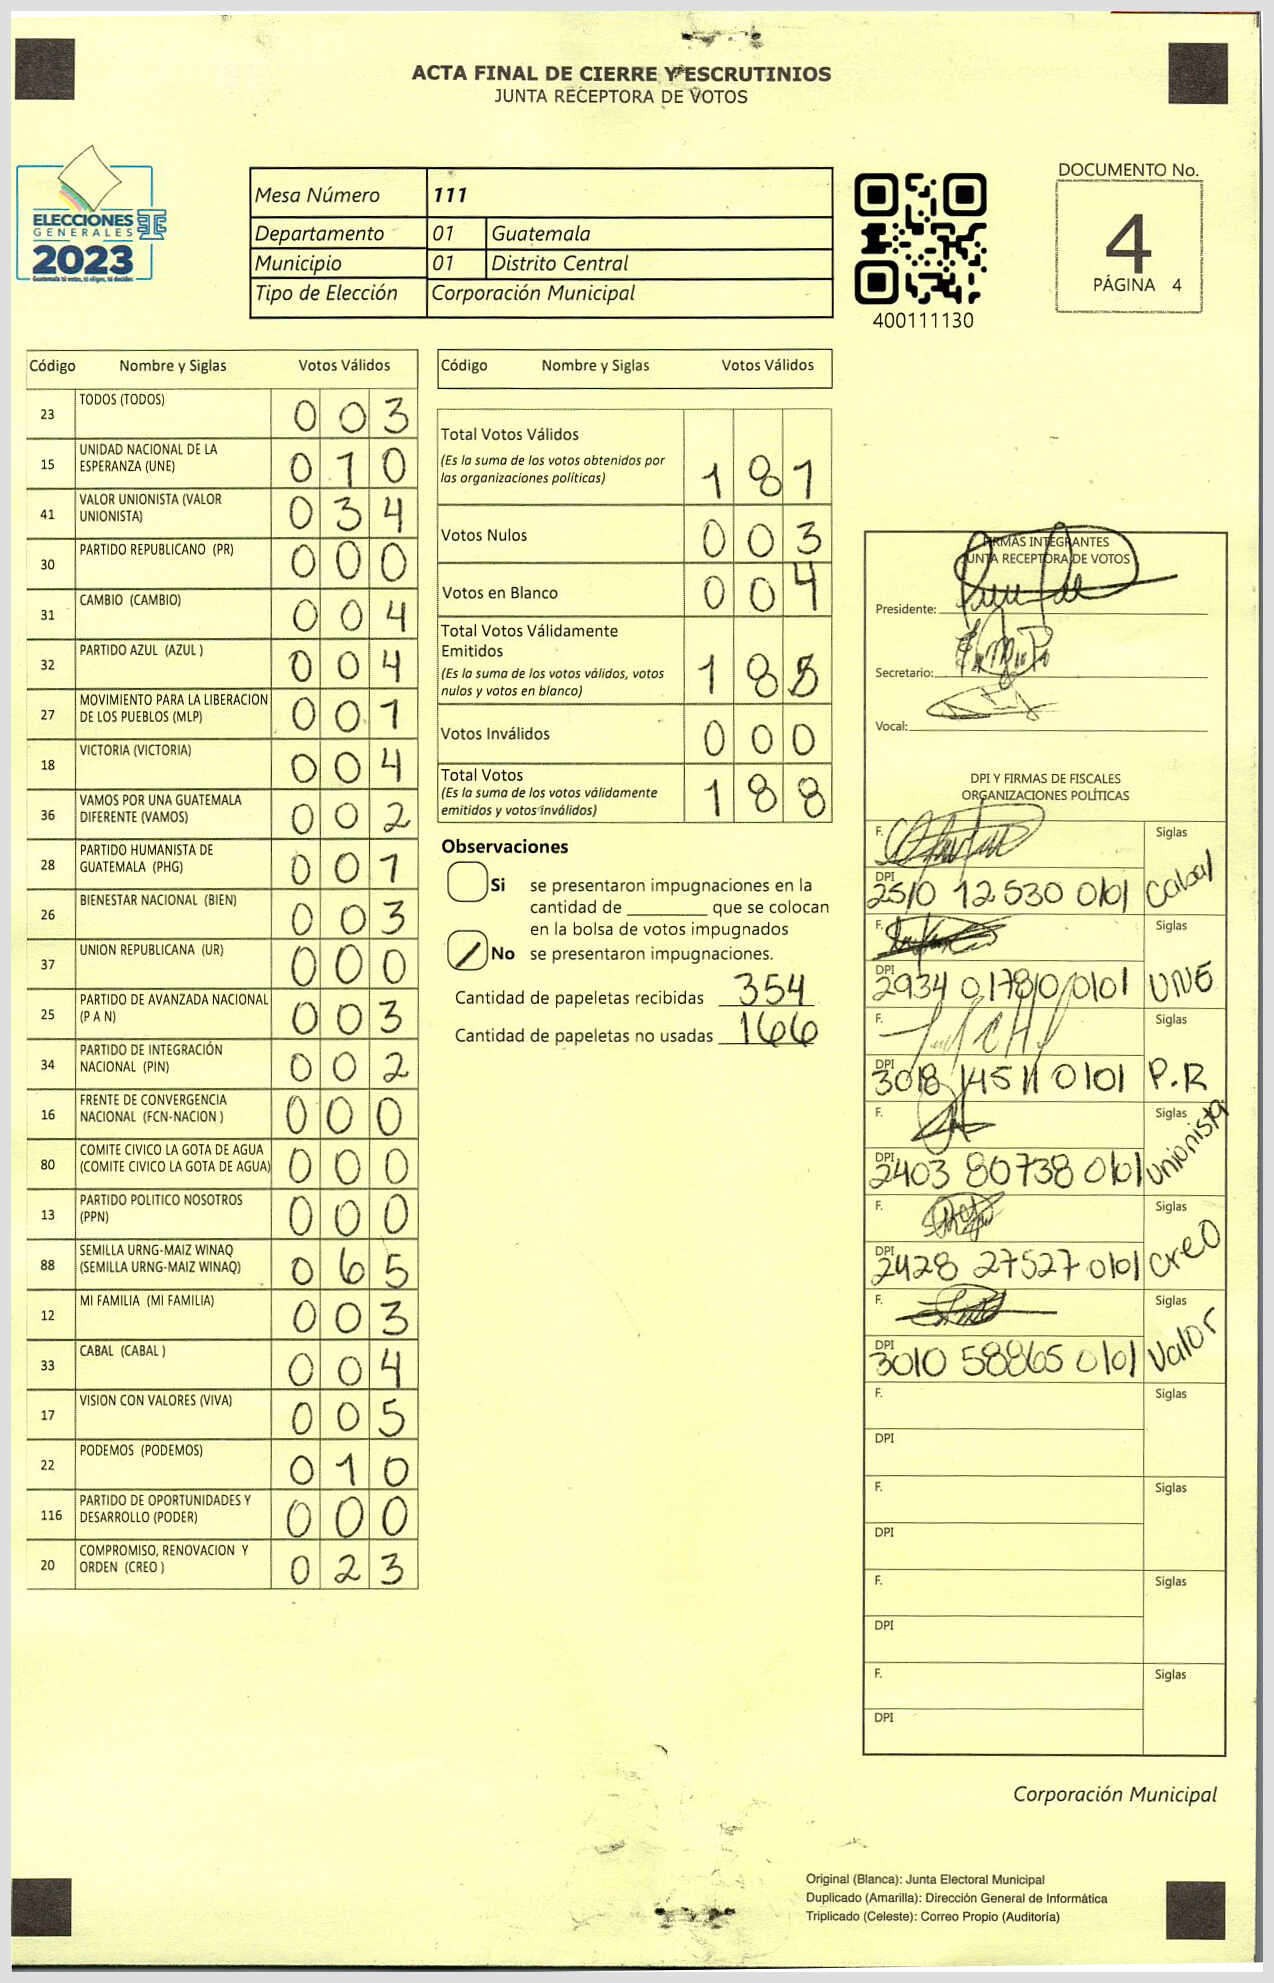 ACTA FINAL DE CIERRE Y ESCRUTINIOS
JUNTA RECEPTORA DE VOTOS
ELECCIONES
GENERALES
2023
Guatemala tú votas, tú eliges, tú decides
Mesa Número 111
Departamento 01 Guatemala
Municipio 01 Distrito Central
Tipo de Elección Corporación Municipal
400111130
DOCUMENTO No.
4
PÁGINA 4
Código Nombre y Siglas Votos Válidos
23 TODOS (TODOS) 0 0 3
15 UNIDAD NACIONAL DE LA
ESPERANZA (UNE) 0 1 0
41 VALOR UNIONISTA (VALOR
UNIONISTA) 0 3 4
30 PARTIDO REPUBLICANO (PR) 0 0 0
31 CAMBIO (CAMBIO) 0 0 4
32 PARTIDO AZUL (AZUL ) 0 0 4
27 MOVIMIENTO PARA LA LIBERACION
DE LOS PUEBLOS (MLP) 0 0 1
18 VICTORIA (VICTORIA) 0 0 4
36 VAMOS POR UNA GUATEMALA
DIFERENTE (VAMOS) 0 0 2
28 PARTIDO HUMANISTA DE
GUATEMALA (PHG) 0 0 1
26 BIENESTAR NACIONAL (BIEN) 0 0 3
37 UNION REPUBLICANA (UR) 0 0 0
25 PARTIDO DE AVANZADA NACIONAL
(P A N) 0 0 3
34 PARTIDO DE INTEGRACIÓN
NACIONAL (PIN) 0 0 2
16 FRENTE DE CONVERGENCIA
NACIONAL (FCN-NACION ) 0 0 0
80 COMITE CIVICO LA GOTA DE AGUA
(COMITE CIVICO LA GOTA DE AGUA) 0 0 0
13 PARTIDO POLITICO NOSOTROS
(PPN) 0 0 0
88 SEMILLA URNG-MAIZ WINAQ
(SEMILLA URNG-MAIZ WINAQ) 0 6 5
12 MI FAMILIA (MI FAMILIA) 0 0 3
33 CABAL (CABAL ) 0 0 4
17 VISION CON VALORES (VIVA) 0 0 5
22 PODEMOS (PODEMOS) 0 1 0
116 PARTIDO DE OPORTUNIDADES Y
DESARROLLO (PODER) 0 0 0
20 COMPROMISO, RENOVACION Y
ORDEN (CREO ) 0 2 3
Código Nombre y Siglas Votos Válidos
Total Votos Válidos
(Es la suma de los votos obtenidos por
las organizaciones políticas) 1 8 1
Votos Nulos 0 0 3
Votos en Blanco 0 0 4
Total Votos Válidamente
Emitidos
(Es la suma de los votos válidos, votos
nulos y votos en blanco) 1 8 8
Votos Inválidos 0 0 0
Total Votos
(Es la suma de los votos válidamente
emitidos y votos inválidos) 1 8 8
Observaciones
Si se presentaron impugnaciones en la
cantidad de ________ que se colocan
en la bolsa de votos impugnados
No se presentaron impugnaciones.
Cantidad de papeletas recibidas 354
Cantidad de papeletas no usadas 166
FIRMAS INTEGRANTES
JUNTA RECEPTORA DE VOTOS
Presidente:
Secretario:
Vocal:
DPI Y FIRMAS DE FISCALES
ORGANIZACIONES POLÍTICAS
F. Siglas
DPI 2510 12530 0101 Cabal
F. Siglas
DPI 2934 01780 0101 UNE
F. Siglas
DPI 3018 14511 0101 P.R
F. Siglas
DPI 2403 80738 0101 Unionista
F. Siglas
DPI 2428 27527 0101 Creo
F. Siglas
DPI 3010 58865 0101 Valor
F. Siglas
DPI
F. Siglas
DPI
F. Siglas
DPI
F. Siglas
DPI
Corporación Municipal
Original (Blanca): Junta Electoral Municipal
Duplicado (Amarilla): Dirección General de Informática
Triplicado (Celeste): Correo Propio (Auditoría)